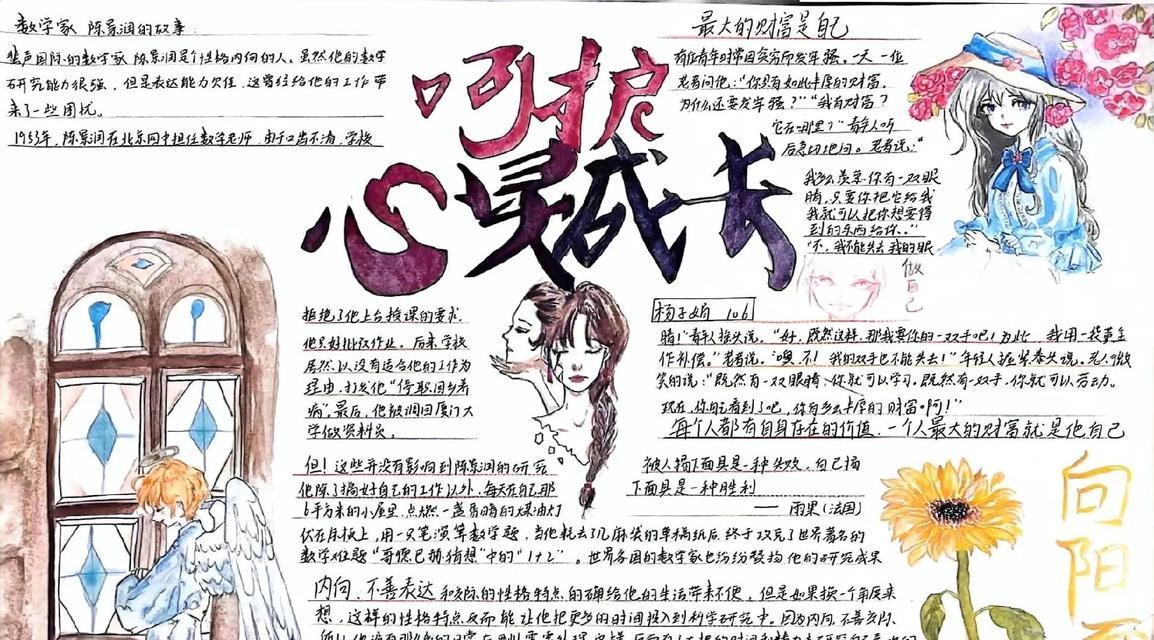 数学家 陈景润的故事:
蜚声国际的数学家 陈景润是个性格内向的人。虽然他的数学
研究能力很强，但是表达能力欠佳，这曾经给他的工作带
来了一些困扰。
1953年，陈景润在北京四中担任数学老师，由于口齿不清，学校
呵护
心灵成长
拒绝了他上台授课的要求，
他只好批改作业。后来学校
居然以没有适合他的工作为
理由，打发他“停职回乡养
病”。最后，他被调回厦门大
学做资料员。
但！这些并没有影响到陈景润的研究
他除了搞好自己的工作以外，每天在自己那
6平方米的小屋里，点燃一盏昏暗的煤油灯
伏在床板上，用一只笔演算数学题，当他耗去了几麻袋的草稿纸后，终于攻克了世界著名的
数学难题“哥德巴赫猜想”中的“1+2”。世界各国的数学家也纷纷赞扬他的研究成果
内向、不善表达和交际的性格特点的确给他的生活带来不便，但是如果换一个角度来
想，这样的性格特点反而能让他把更多的时间投入到科学研究中。因为内向、不善交际、
最大的财富是自己
有位青年时常因贫穷而发牢骚。一天一位
老者问他：“你具有如此丰厚的财富，
为什么还要发牢骚？”“我有财富？
它在哪里？”青年人听
后急切地问。老者说：“
我多么羡慕你有一双眼
睛，只要你把它给我
我就可以把你想要得
到的东西给你。”
“不，我不能失去我的眼
做自己
杨子娟 106
睛！”青年人摇头说。“好，既然这样，那我要你的一双手吧！为此，我用一袋黄金
作补偿。”老者说。“噢，不！我的双手也不能失去！”年轻人握紧拳头说。老人微
笑的说：“既然有一双眼睛，你就可以学习。既然有一双手，你就可以劳动。
现在，你自己看到了吧，你有多么丰厚的财富啊！”
每个人都有自身存在的价值，一个人最大的财富就是他自己
被人揭下面具是一种失败，自己揭
下面具是一种胜利
——雨果（法国）
向阳而